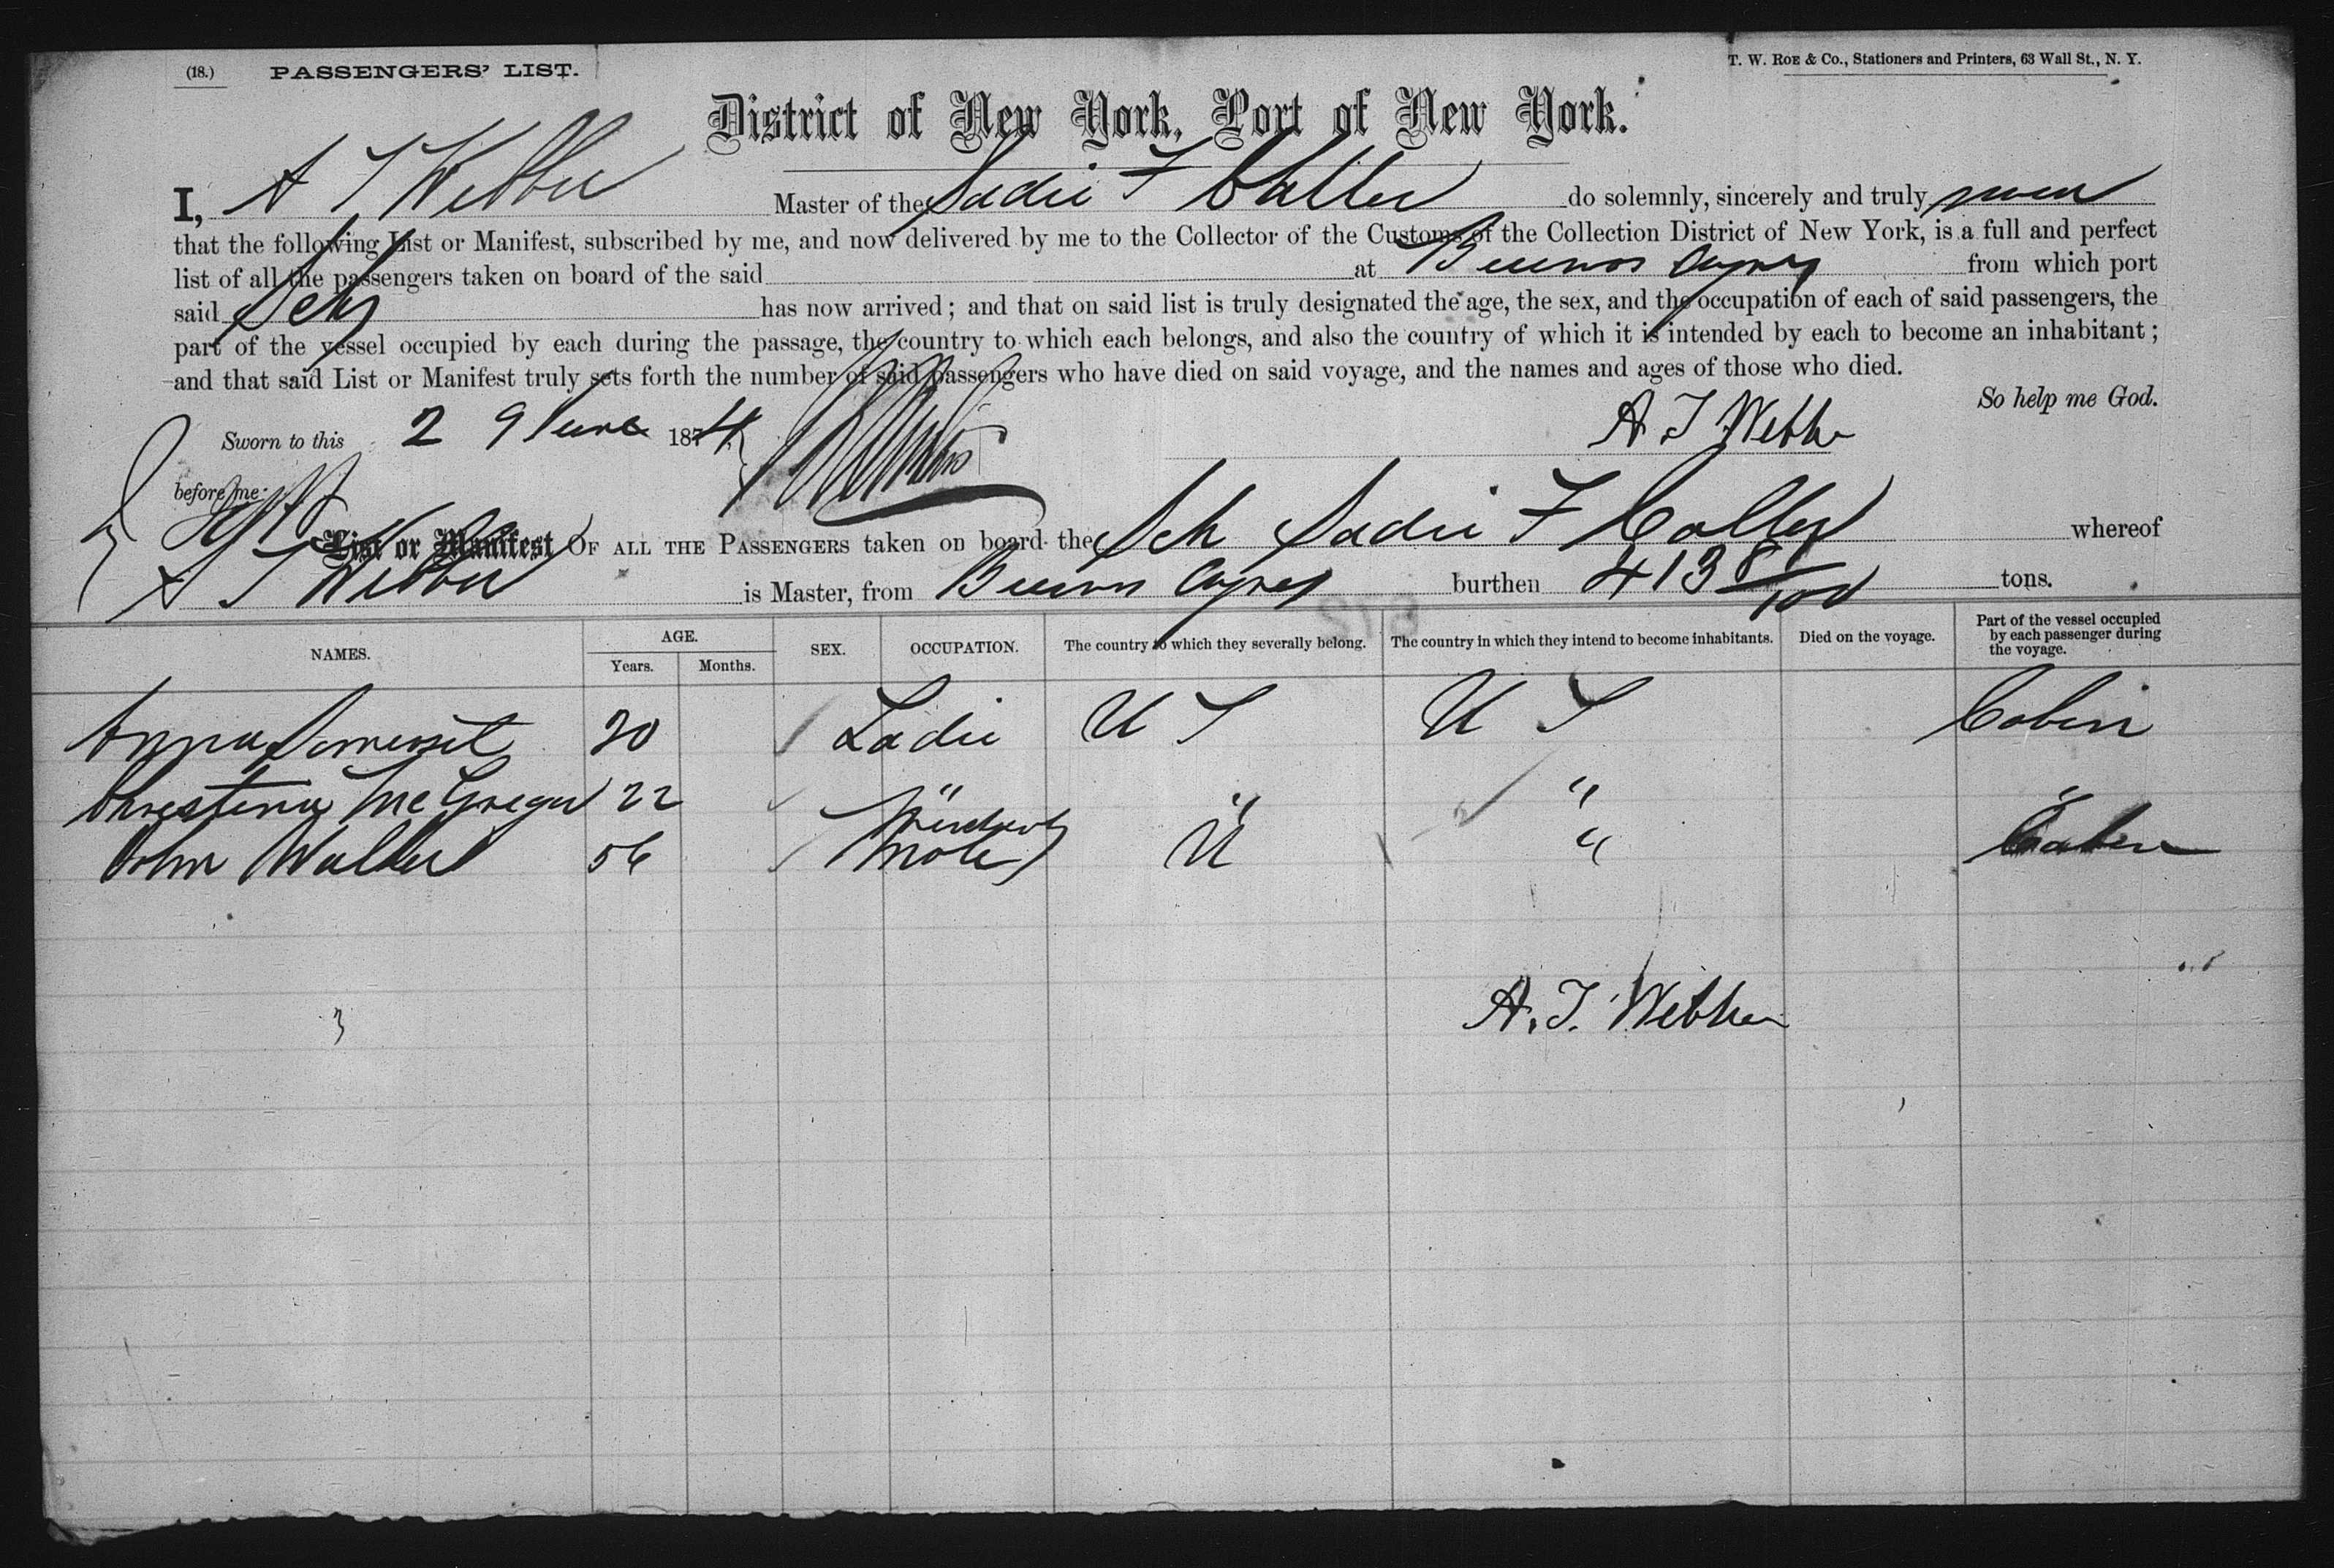 (18.) PASSENGERS' LIST.
T. W. ROE & Co., Stationers and Printers, 63 Wall St., N. Y.
District of New York, Port of New York.
I, A T Webber Master of the Sadie F Caller do solemnly, sincerely and truly swear
that the following List or Manifest, subscribed by me, and now delivered by me to the Collector of the Customs of the Collection District of New York, is a full and perfect
list of all the passengers taken on board of the said at Buenos Ayres from which port
said Sch has now arrived; and that on said list is truly designated the age, the sex, and the occupation of each of said passengers, the
part of the vessel occupied by each during the passage, the country to which each belongs, and also the country of which it is intended by each to become an inhabitant;
and that said List or Manifest truly sets forth the number of said passengers who have died on said voyage, and the names and ages of those who died.
So help me God.
Sworn to this 29 June 1874 A. T Webber
before me
List or Manifest OF ALL THE PASSENGERS taken on board the Sch Sadie F Caller whereof
A T Webber is Master, from Buenos Ayres burthen 413 81/100 tons.
NAMES. AGE. Years. Months. SEX. OCCUPATION. The country to which they severally belong. The country in which they intend to become inhabitants. Died on the voyage. Part of the vessel occupied by each passenger during the voyage.
Anna Somerset 20 Ladie U S U S Cabin
Christina McGregor 22 " " " "
John Waller 56 U " Caben
A. T. Webber
3